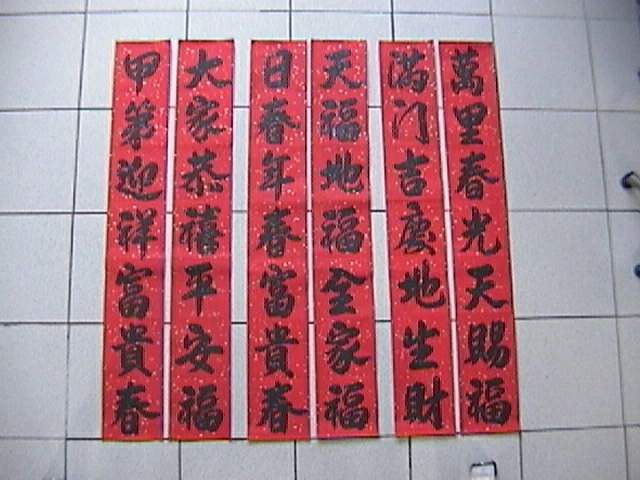 萬里春光天賜福
滿门吉慶地生財
天福地福全家福
日春年春富貴春
大家恭禧平安福
甲第迎祥富貴春